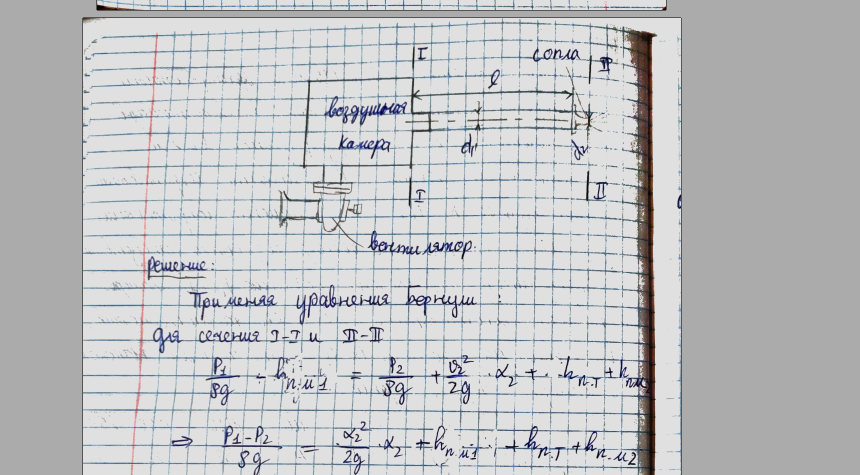 I
сопла
II
l
воздушная
камера
d₁
d₂
I
II
вентилятор.
Решение:
Применяя уравнения Бернули :
для сечения I-I и II-II
P₁/ρg - hп.м1 = P₂/ρg + v₂²/2g · α₂ + hп.т + hп.м2
⇒ P₁-P₂/ρg = α₂²/2g · α₂ + hп.м1 + hп.т + hп.м2